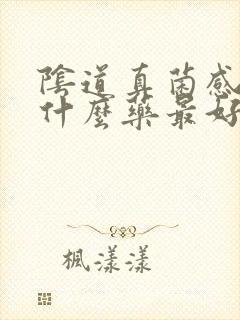 陰道真菌感
什麼藥最好
楓漾漾